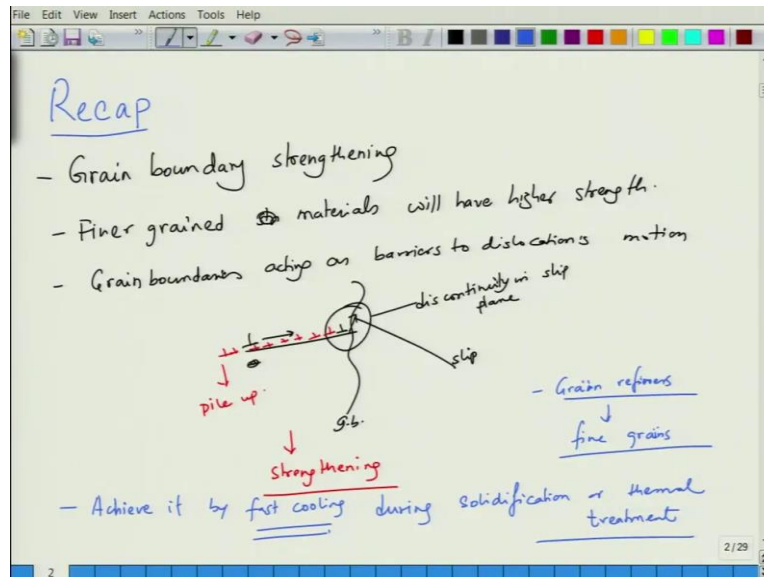 File Edit View Insert Actions Tools Help
Recap
- Grain boundary strengthening
- Finer grained materials will have higher strength.
- Grain boundaries acting as barriers to dislocation's motion
discontinuity in slip
plane
slip
pile up.
g.b.
strengthening
- Grain refiners
fine grains
- Achieve it by fast cooling during solidification or thermal
treatment
2/29
2